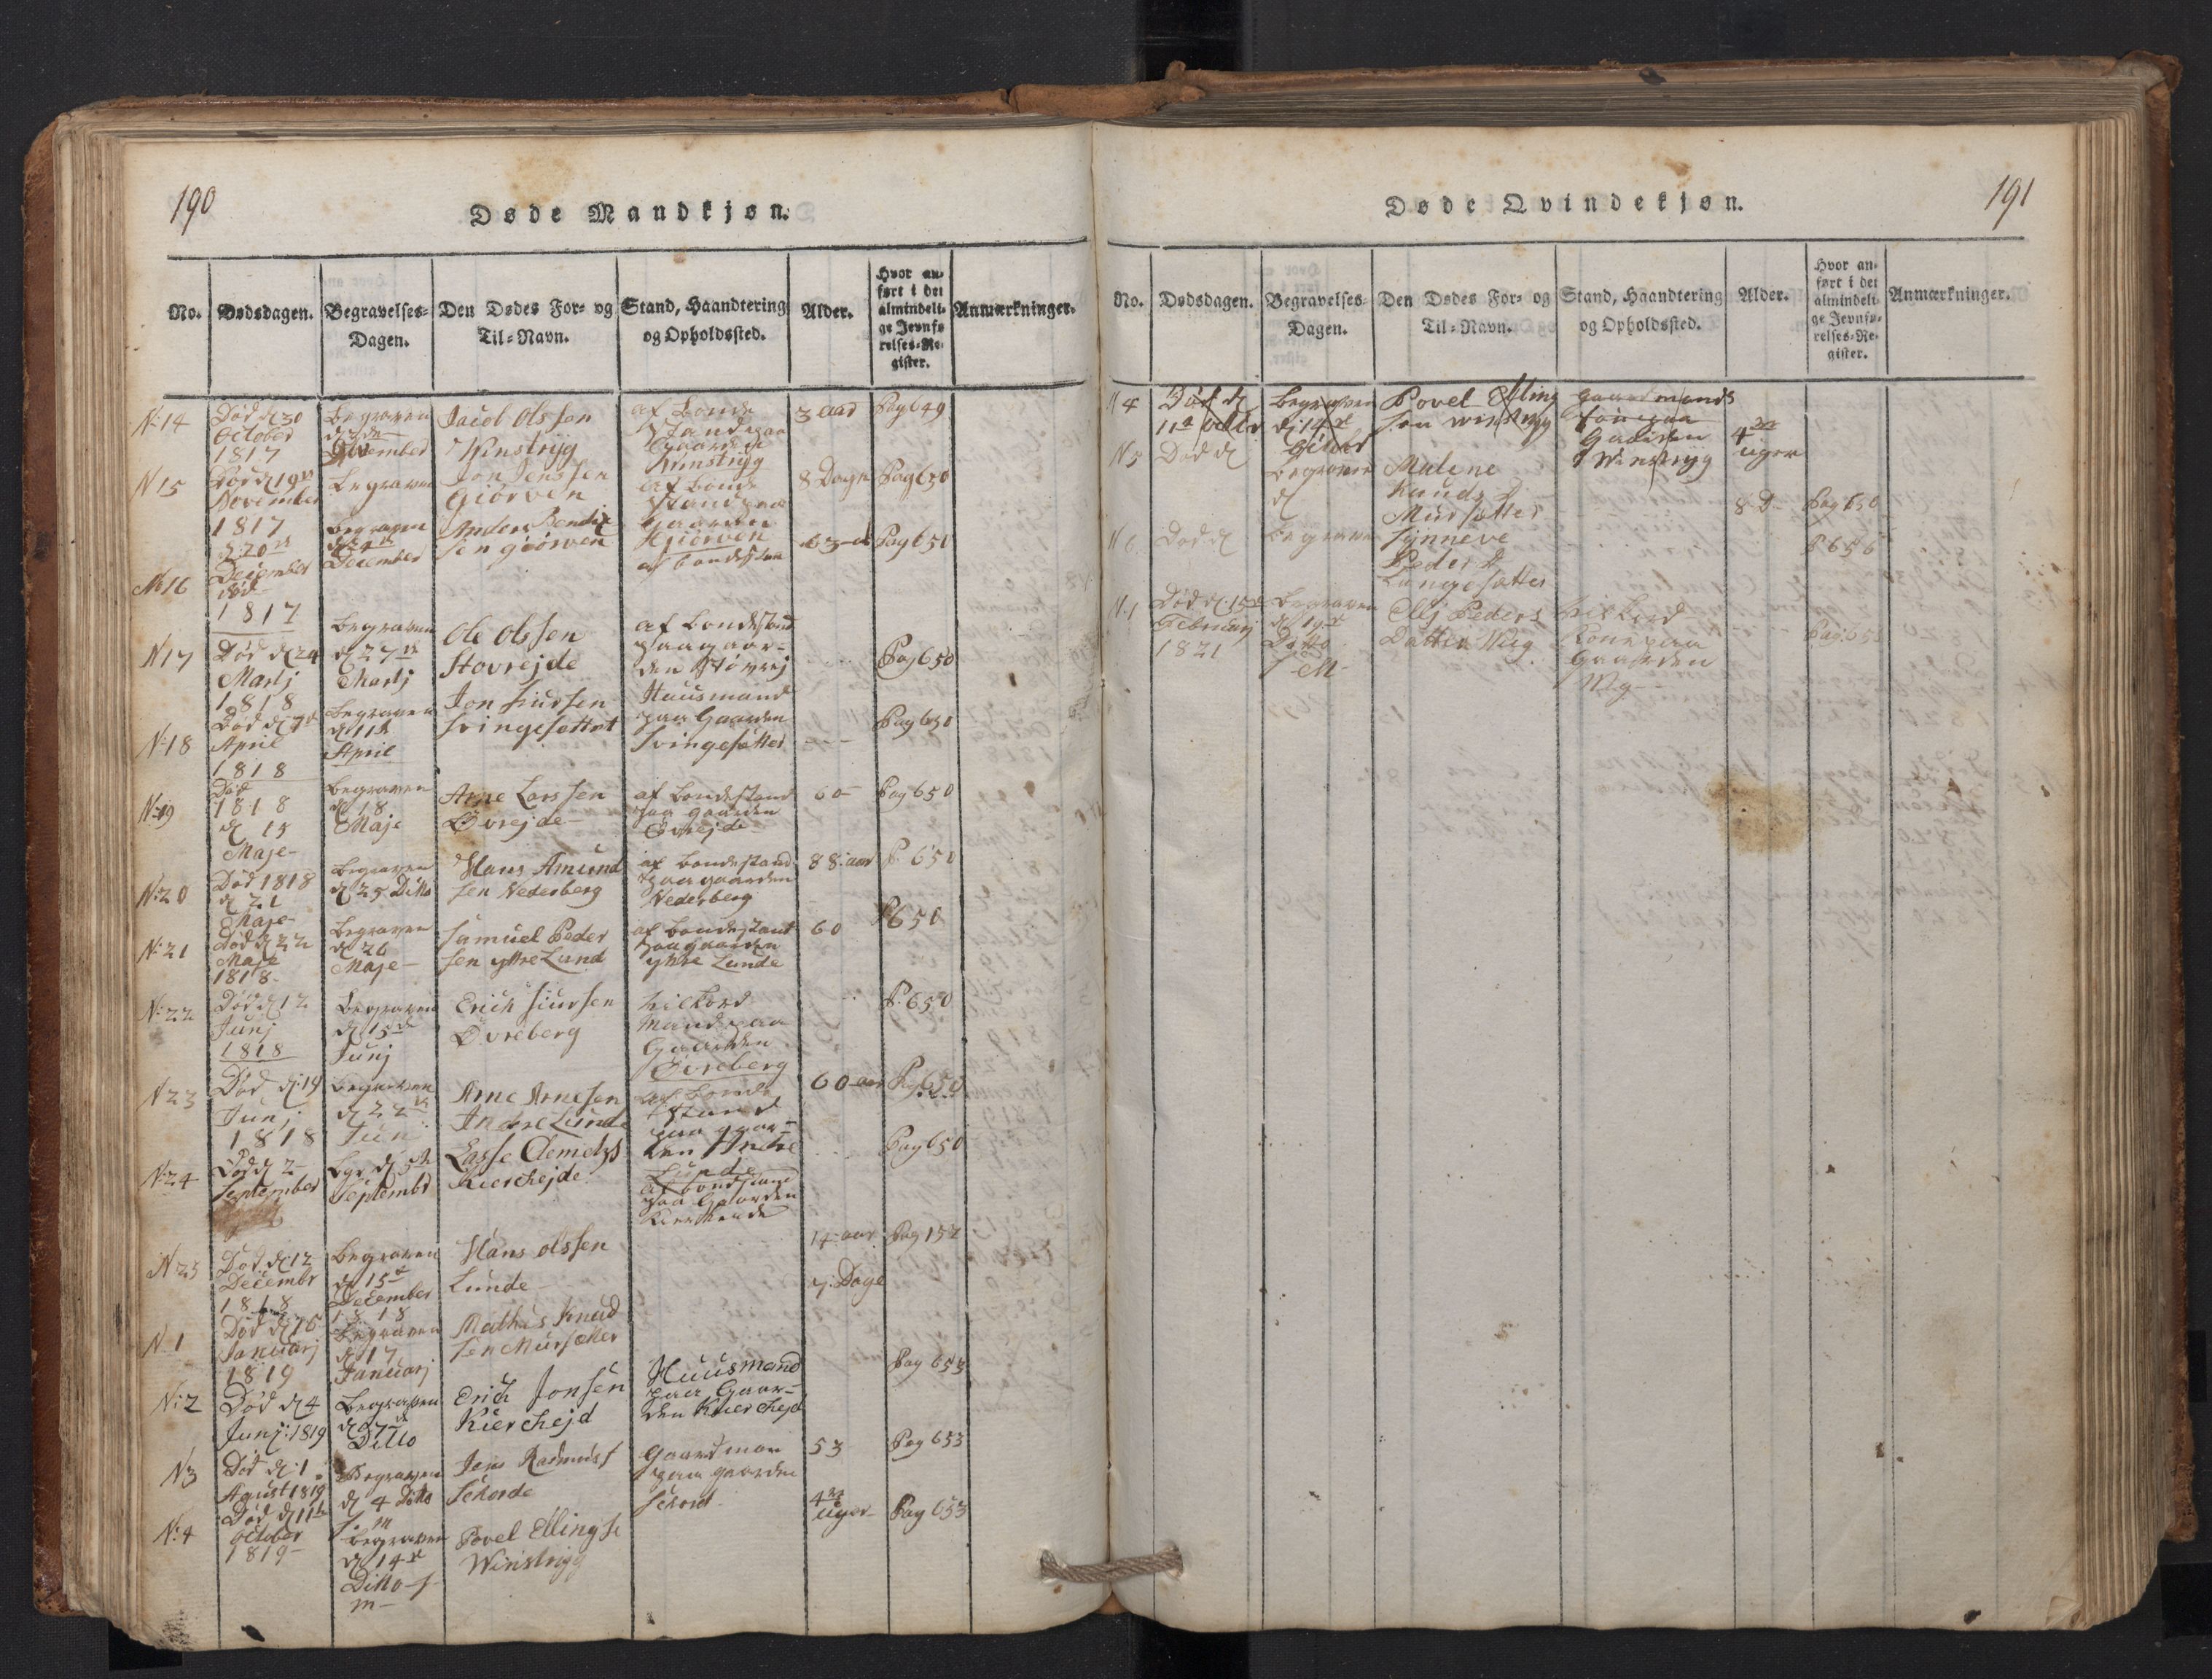 190
Døde Mandkjøn.
No.
Dødsdagen.
Begravelses-
Dagen.
Den Dødes For- og
Til-Navn.
Stand, Haandtering
og Opholdssted.
Alder.
Hvor an-
ført i det
almindeli-
ge Jevnfø-
relses-Re-
gister.
Anmærkninger.
N:14
Død d 30
October
1817
Begraven
November
Jacob Olssen
Winstryg
af Bonde
Stand paa
Gaarden
Winstryg
3 aar
Pag 649
N 15
Død d 19
November
1817
Begraven
Jon Jenssen
Giörven
af Bonde
Stand paa
Gaarden
Giörven
8 Dage
Pag 650
No 16
d: 20
December
død
1817
Begraven
December
Anders Bendix
sen Giörven
af Bondestan
63
Pag 650
N17
Død d 24
Martj
1818
Begraven
d 27
Martj
Ole Olssen
Stovrejde
af Bondestand
paa gaar-
den Støvrej
Pag 650
N:18
Død d 7
April
1818
Begraven
d 11
April
Jon Siursen
Svingesettet
Huusmand
paa Gaarden
Svingesetter
Pag 650
N:19
Død
1818
d 15
Maje-
Begraven
d 18
Maje
Arne Larssen
Øvrejde
af Bondestand
paa gaarden
Øvrejde
60
Pag 650
N:20
Død 1818
d 21
Maje-
Begraven
d 25 Ditto
Hans Amund
sen Nedreberg
af Bondestand
paa gaarden
Nedreberg
88 aar
P 650
N:21
Død d 22
Maje
1818.
Begraven
d 26
Maje-
Samuel Peder
sen ytre Lund
af Bondestand
paa gaarden
ytre Lunde
60
P 650
N:22
Død d 12
Junj
1818
Begraven
d 15
Junj
Erick Siursen
Øvreberg
Mand paa
Gaarden
Øvreberg
P. 650
N 23
Død d: 19
Junj
1818
Begraven
d 22
Jun
Arne Arnesen
Indre Lunde
af Bonde
stand
paa gaar-
den Indre
Lunde
60 aar
Pag 650
N:24
Død d 2
September
Begr. d 5
Septembr
Lasse Clemets
Kierchejde
af Bondestand
paa Gaarden
Pag 650
N 25
Død d:12
Decembr
1818
Begraven
d 15
December
1818
Hans Olssen
Lunde
14 aar
Pag 152
N 1
Død d 10
Januarj
1819
Begraven
d 17
Januarj
Mathis Knud
sen Mursætter
7. Dage
N:2
Død d 4
Junj: 1819
Begraven
d 7
Ditto
Erich Jonsen
Kierchejd
Huusmand
paa Gaar-
den Kierchejd
Pag 653
N3
Død d:1
Agust 1819
Begraven
d 4 Ditto
Jens Rasmus
Schorde
Gaardman
paa gaarden
Schord
53
Pag 653
N:4
Død d 11
October
1819-
Begraven
d 14
Ditto
Povel Ellingse
Winstrigg
4
uger
Pag 653
191
Døde Qvindekjøn.
No.
Dødsdagen.
Begravelses-
Dagen.
Den Dødes For- og
Til-Navn.
Stand, Haandtering
og Opholdssted.
Alder.
Hvor an-
ført i det
almindeli-
ge Jevnfø-
relses-Re-
gister.
Anmærkninger.
N 4
Død d
11
Begraven
d: 14
Povel Elling
sen Winstryg
Gaardmands
Søn paa
Gaarden
Winstryg
4
uger
N 5
Død d
Begraven
d
Malene
Knuds D
Mursætter
8 D
Pag 650
N 6
Død d
Begraven
Synneve
Peders D
Langesætter
P 656
N:1
Død d. 15
Februarj
1821
Begraven
d 19
Ditto
Peders
Datter Wig
Kone paa
Gaarden
Wig
Pag: 65